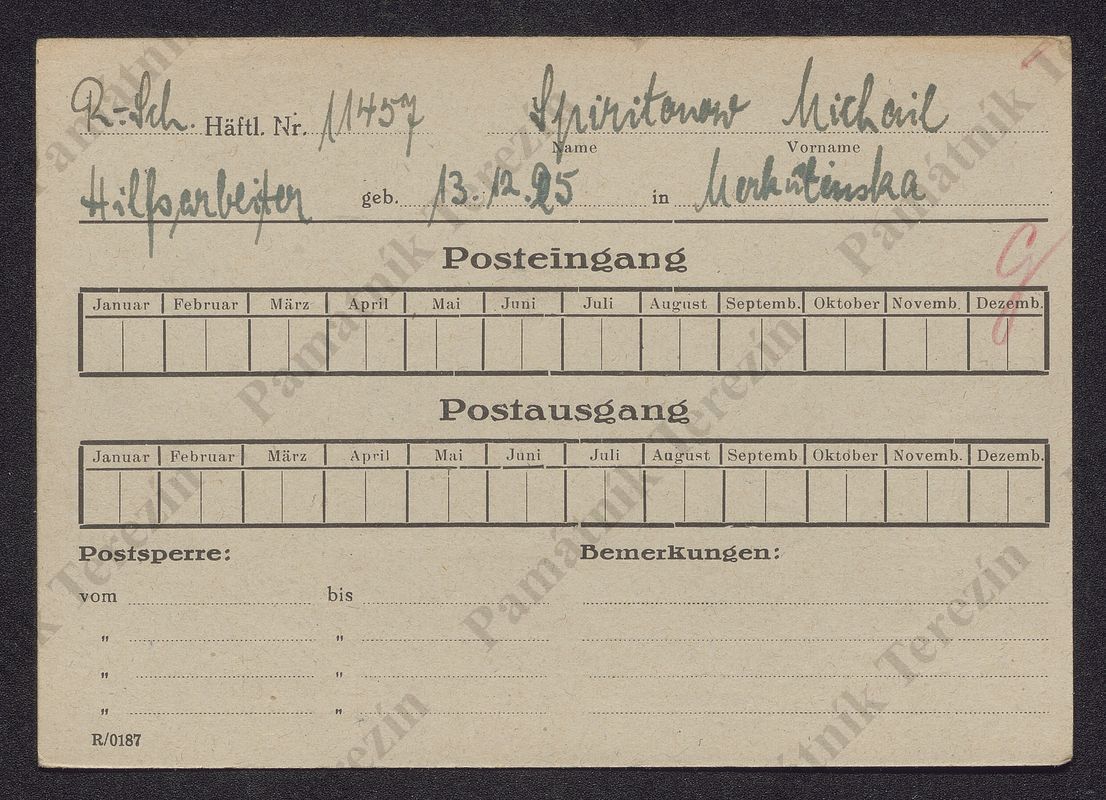 R=Sch. Häftl. Nr. 11457 Spiritonow Michail
Name Vorname
Hilfsarbeiter geb. 13. 12. 25 in
Posteingang
Januar Februar März April Mai Juni Juli August Septemb. Oktober Novemb. Dezemb.
Postausgang
Januar Februar März April Mai Juni Juli August Septemb. Oktober Novemb. Dezemb.
Postsperre: Bemerkungen:
vom bis
" "
" "
" "
R/0187
Památník Terezín